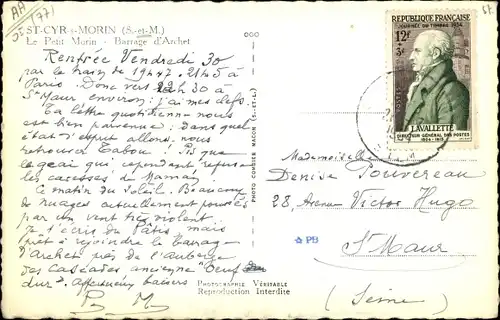 ST-CYR-s-MORIN (S.-et-M.)
Le Petit Morin - Barrage d'Archet
Rentrée Vendredi 30
par le train de 19h47. 21h5 à
Paris. Donc vers 22h30 à
St Maur environ; j'ai mes clefs.
Ta lettre quotidienne nous
est bien parvenue; dans quel
état d'esprit allons nous
retrouver Tabou? Pis que
le geai qui cependant refuse
les caresses de Maman.
Ce matin du soleil. Beaucoup
de nuages actuellement poussés
par un vent très violent
Je t'écris du Pâtis mais
prêt à rejoindre le barrage
d'Archet près de l'auberge
des Cascades ancienne "Oeuf
dur". Affectueux baisers
PHOTO COMBIER MACON (S.-ET-L.)
REPUBLIQUE FRANÇAISE
JOURNEE DU TIMBRE 1954
12F
+3F
POSTES
LAVALLETTE
DIRECTEUR GÉNÉRAL DES POSTES
1804 - 1815
Mademoiselle
Denise Pouvereau
28, Avenue Victor Hugo
St Maur
(Seine)
PB
PHOTOGRAPHIE VÉRITABLE
Reproduction Interdite